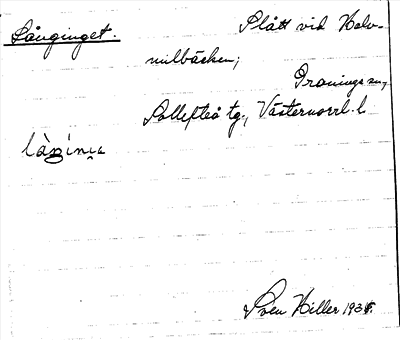 Långinget. Slått vid Halv-
milbäcken;
Graninge sn,
Sollefteå tg., Västernorrl. l
Sven Hiller